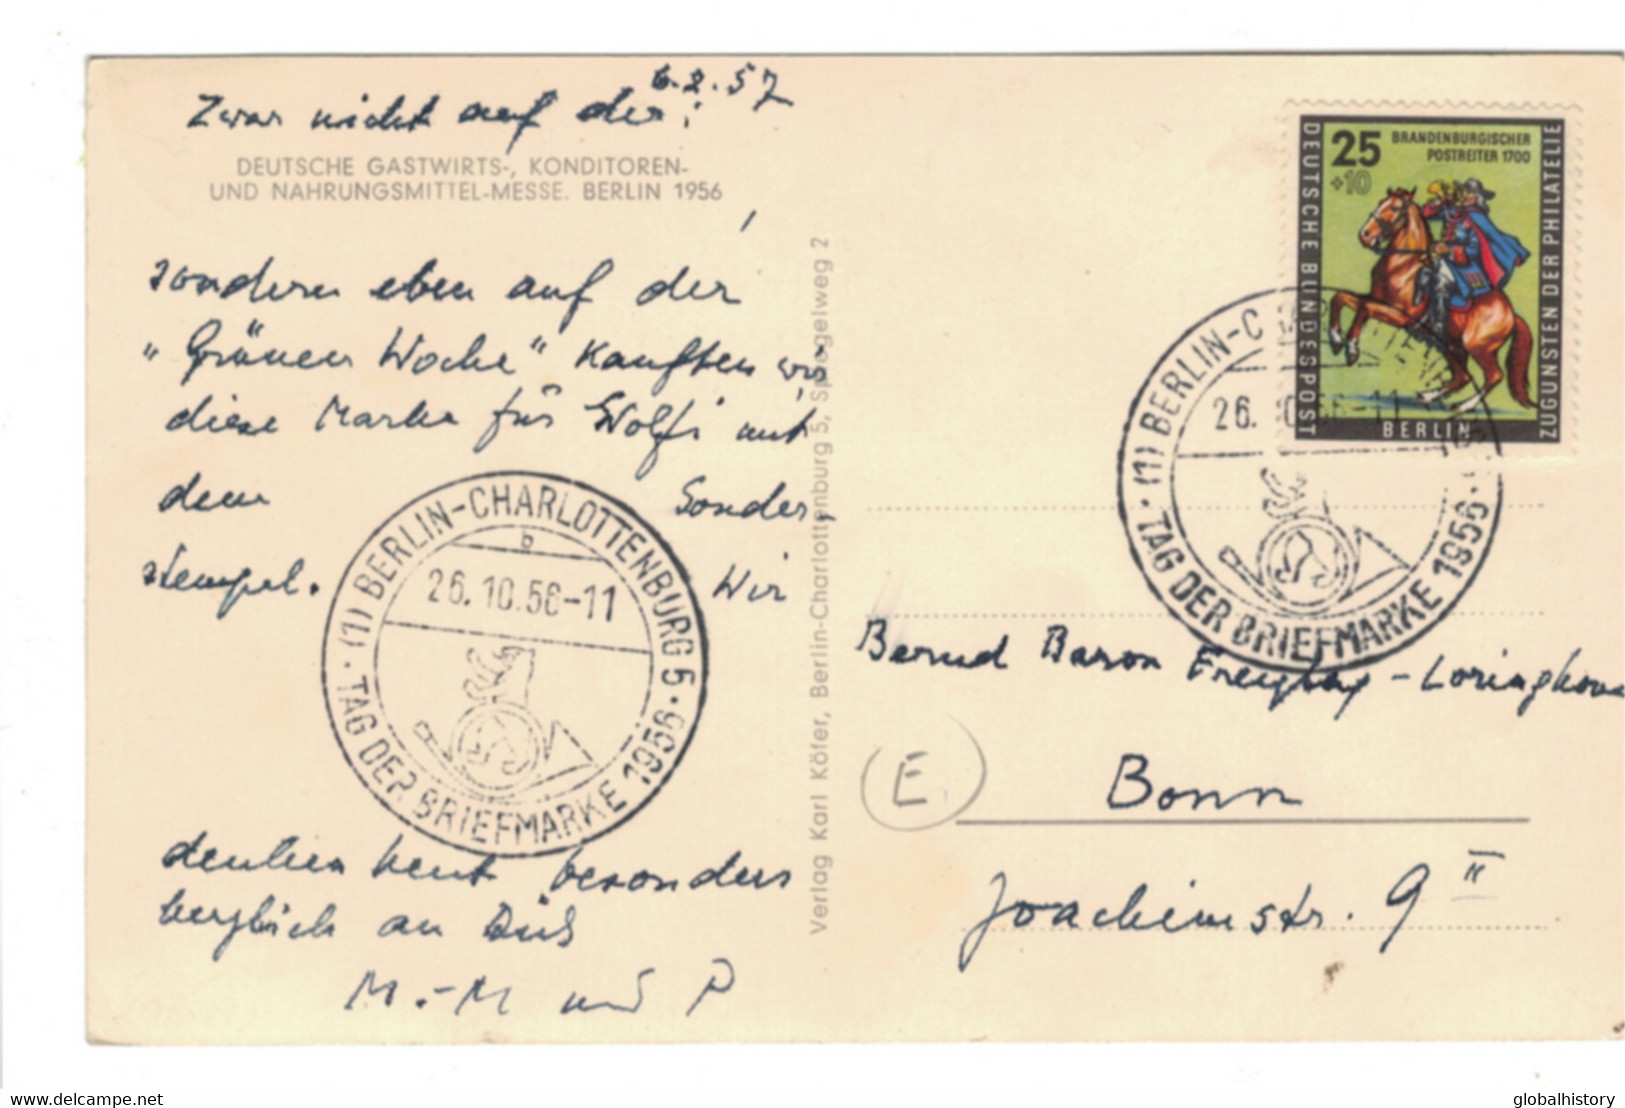 6.2.57
Zwar nicht auf der:
DEUTSCHE GASTWIRTS-, KONDITOREN-
UND NAHRUNGSMITTEL-MESSE. BERLIN 1956
sondern eben auf der
"Grünen Woche" kauften wir
diese Marke für Wolfi mit
dem Sonder-
stempel. Wir
denken heut besonders
herzlich an Dich
M.-M und P
(1) BERLIN-CHARLOTTENBURG 5
b
26.10.56-11
TAG DER BRIEFMARKE 1956
Verlag Karl Köfer, Berlin-Charlottenburg 5, Spiegelweg 2
25
+10
BRANDENBURGISCHER
POSTREITER 1700
DEUTSCHE BUNDESPOST
BERLIN
ZUGUNSTEN DER PHILATELIE
(1) BERLIN-C
26. 56-11
TAG DER BRIEFMARKE 1956
Bernd Baron Freytag-Loringhoven
E
Bonn
Joachimstr. 9 II
delcampe.net
globalhistory